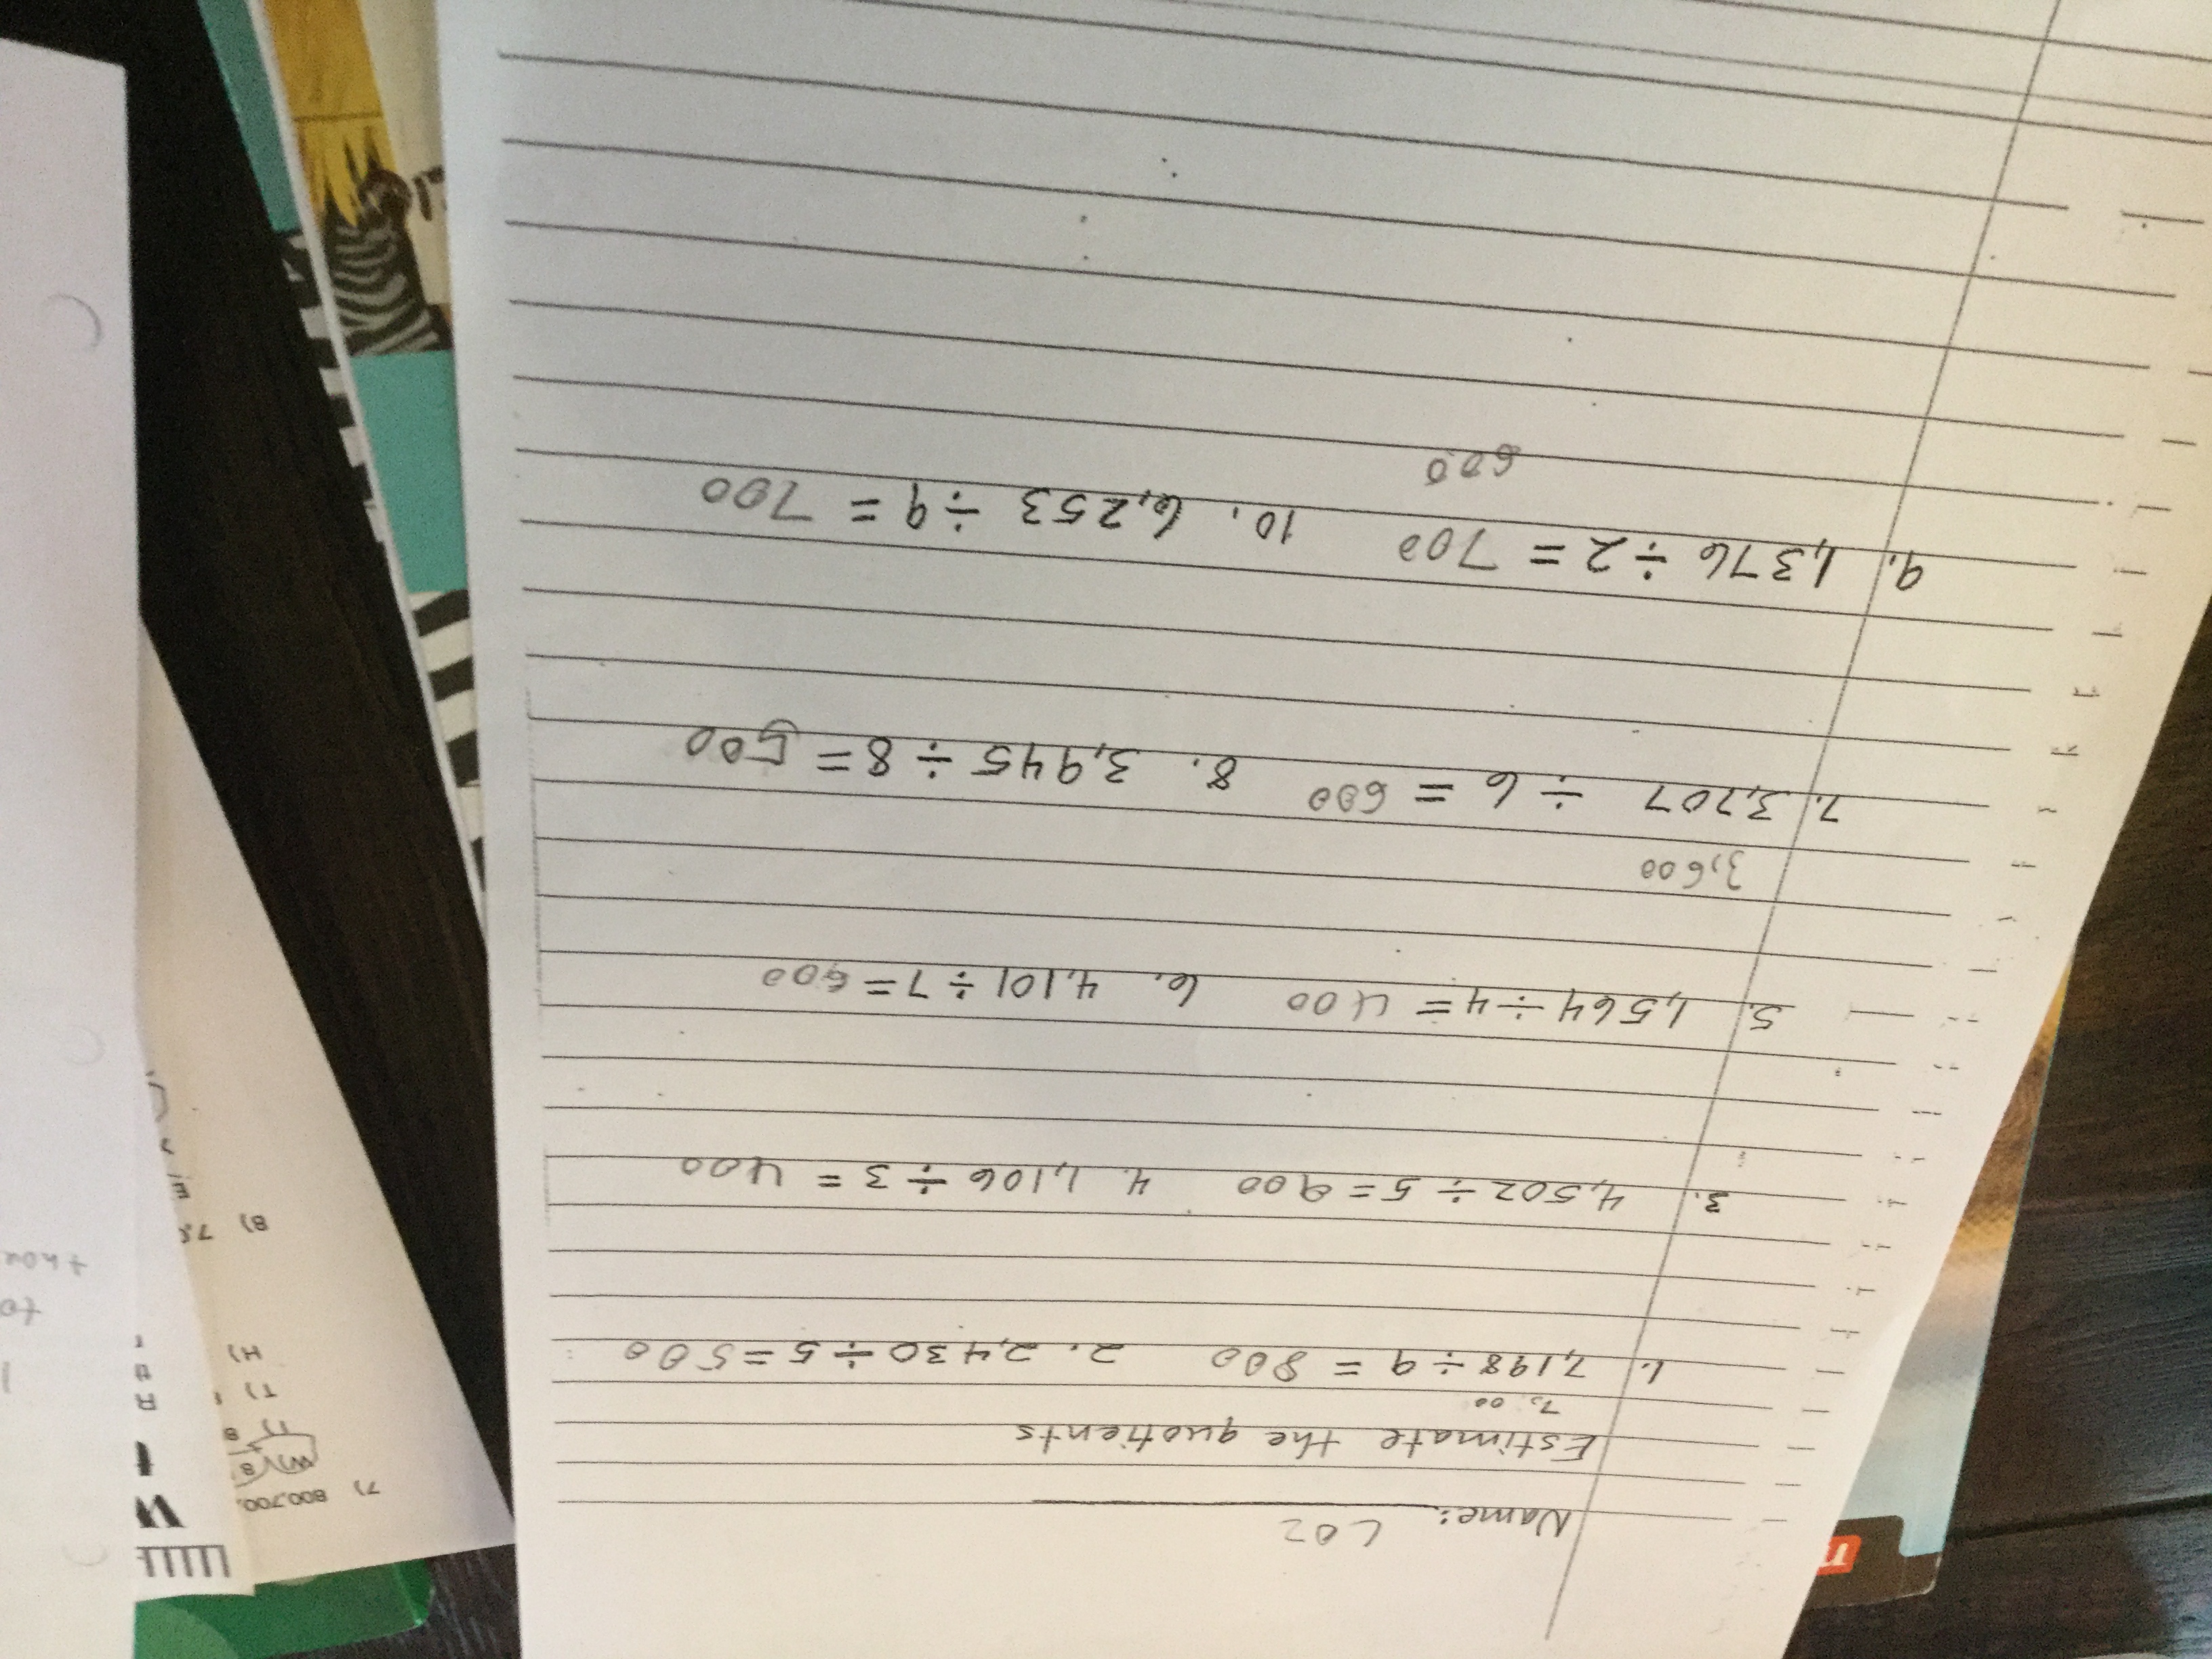 Name: LOZ
Estimate the quotients
1. 7,198 ÷ 9 = 800 2. 2,430 ÷ 5 = 500
3. 4,502 ÷ 5 = 900 4. 1,106 ÷ 3 = 400
5. 1,564 ÷ 4 = 400 6. 4,101 ÷ 7 = 600
3,600
7. 3,707 ÷ 6 = 600 8. 3,945 ÷ 8 = 500
9. 1,376 ÷ 2 = 700 10. 6,253 ÷ 9 = 700
600
7) 800,700,
T)
H)
8)
to